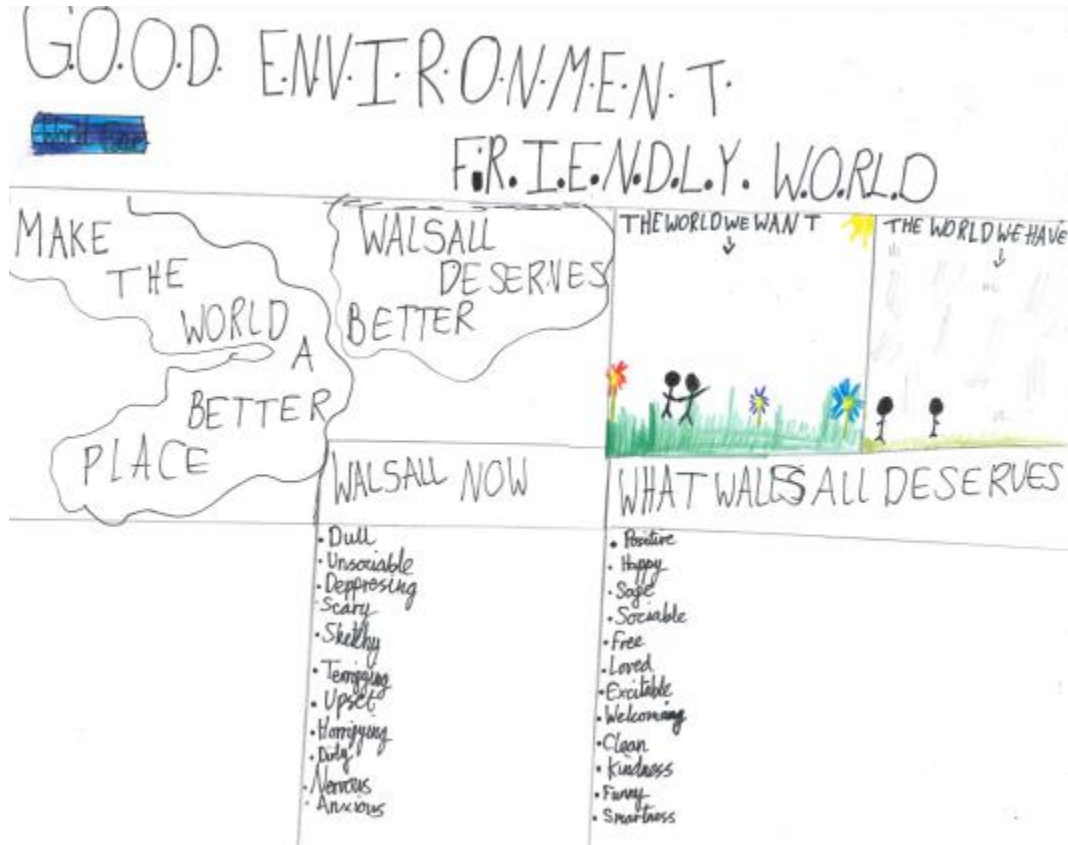 G.O.O.D. E.N.V.I.R.O.N.M.E.N.T.
F.R.I.E.N.D.L.Y. W.O.R.L.D
MAKE
THE
WORLD
A
BETTER
PLACE
WALSALL
DESERVES
BETTER
THE WORLD WE WANT
THE WORLD WE HAVE
WALSALL NOW
• Dull
• Unsociable
• Deppresing
• Scary
• Sketchy
• Terrifying
• Upset
• Horrifying
• Dirty
• Nervous
• Anxious
WHAT WALLSALL DESERVES
• Positive
• Happy
• Safe
• Sociable
• Free
• Loved
• Excitable
• Welcoming
• Clean
• Kindness
• Funny
• Smartness